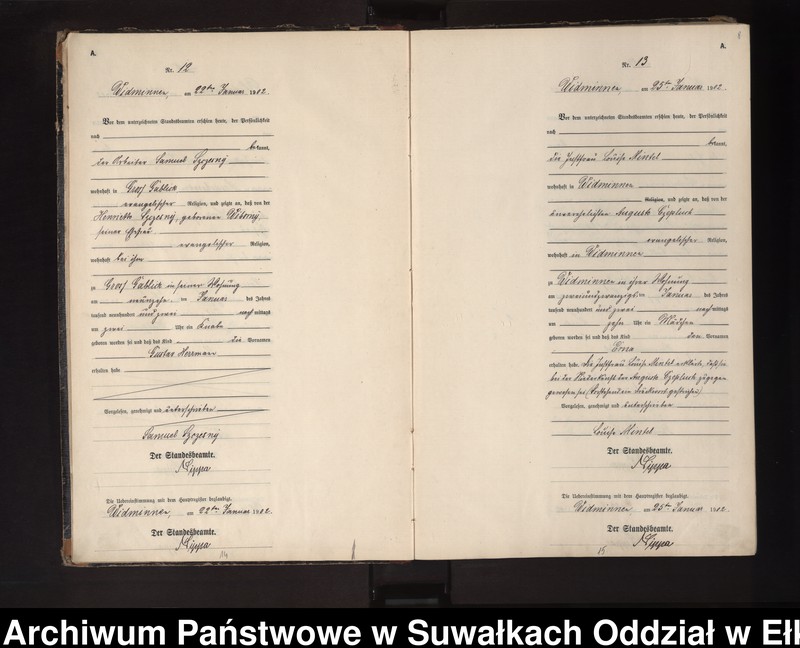 A.
Nr. 12
Widminnen, am 22ten Januar 1902.
Vor dem unterzeichneten Standesbeamten erschien heute, der Persönlichkeit
nach
bekannt,
der Arbeiter Samuel Szczesny
wohnhaft in Groß Gablick
evangelischer Religion, und zeigte an, daß von der
Henriette Szczesny, geborenen
seiner Ehefrau
evangelischer Religion,
wohnhaft bei ihm
zu Groß Gablick in seiner Wohnung
am neunzehn ten Januar des Jahres
tausend neunhundert und zwei nachmittags
um zwei Uhr ein Knabe
geboren worden sei und daß das Kind die Vornamen
Gustav Herrmann
erhalten habe
Vorgelesen, genehmigt und unterschrieben
Samuel Szczesny
Der Standesbeamte.
Die Uebereinstimmung mit dem Hauptregister beglaubigt.
Widminnen, am 22ten Januar 1902.
Der Standesbeamte.
14
A.
Nr. 13
Widminnen, am 25ten Januar 1902.
Vor dem unterzeichneten Standesbeamten erschien heute, der Persönlichkeit
nach
bekannt,
die Louise Mentel
wohnhaft in Widminnen
Religion, und zeigte an, daß von der
unverehelichten Auguste
evangelischer Religion,
wohnhaft in Widminnen
zu Widminnen in ihrer Wohnung
am zweiundzwanzigsten Januar des Jahres
tausend neunhundert und zwei nachmittags
um zehn Uhr ein Mädchen
geboren worden sei und daß das Kind den Vornamen
erhalten habe. Die Louise Mentel erklärte, daß sie
bei der Niederkunft der Auguste zugegen
gewesen sei. (Vorstehend ein Druckwort gestrichen)
Vorgelesen, genehmigt und unterschrieben
Louise Mentel
Der Standesbeamte.
Die Uebereinstimmung mit dem Hauptregister beglaubigt.
Widminnen, am 25ten Januar 1902.
Der Standesbeamte.
15
Archiwum Państwowe w Suwałkach Oddział w Ełk